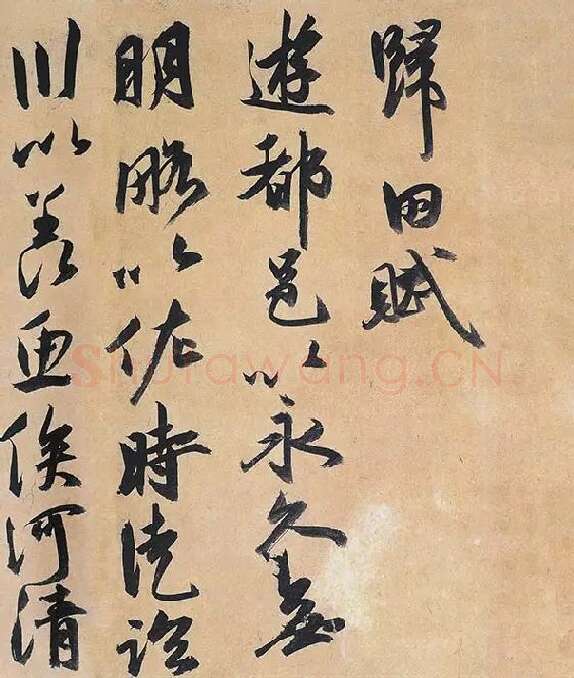 歸田賦
遊都邑以永久無
明略以佐時徒臨
川以羨魚俟河清
Shufawang.CN